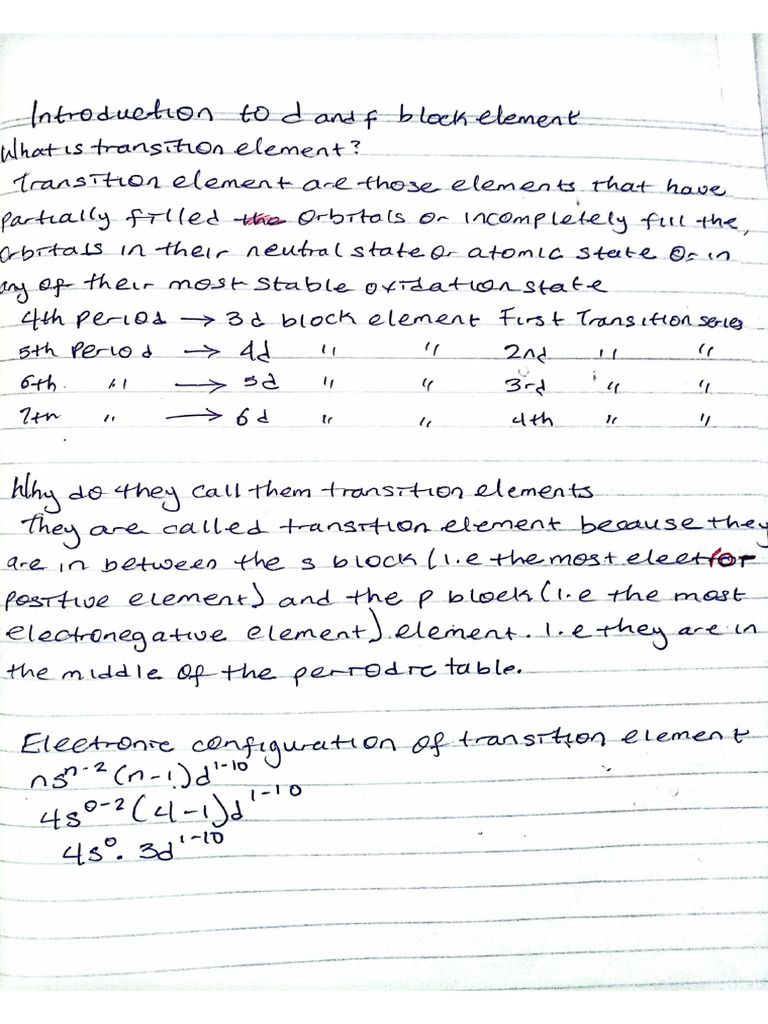 Introduction to d and f block element
What is transition element?
Transition element are those elements that have
partially filled the Orbitals or incompletely fill the,
orbitals in their neutral state or atomic state or in
any of their most stable oxidation state
4th period → 3d block element First Transition series
5th Period → 4d " " 2nd " "
6th " → 5d " " 3rd " "
7th " → 6d " " 4th " "
Why do they call them transition elements
They are called transition element because they
are in between the s block (i.e the most electror
positive element) and the p block (i.e the most
electronegative element) element. I.e they are in
the middle of the periodic table.
Electronic configuration of transition element
nsⁿ⁻² (n-1)d¹⁻¹⁰
4s⁰⁻² (4-1)d¹⁻¹⁰
4s⁰. 3d¹⁻¹⁰